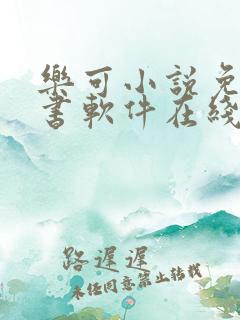 樂可小說免
書軟件在綫
路遲遲
未經同意禁止轉載